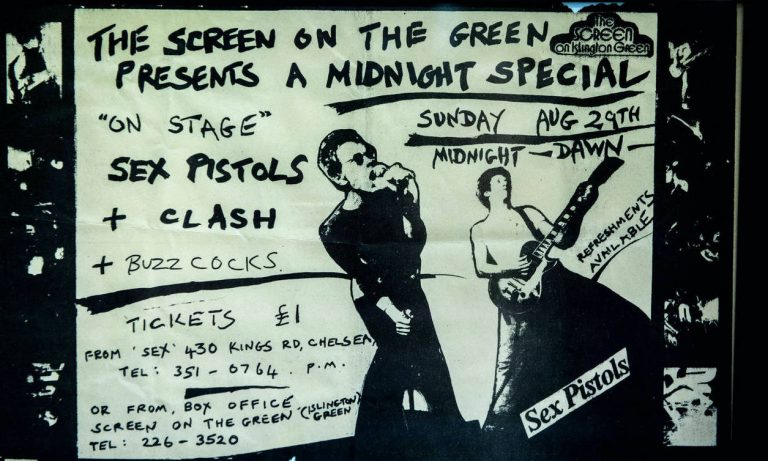 THE SCREEN ON THE GREEN
The
SCREEN
on Islington Green
PRESENTS A MIDNIGHT SPECIAL
"ON STAGE"
SUNDAY AUG 29TH
MIDNIGHT - DAWN -
SEX PISTOLS
+ CLASH
+ BUZZCOCKS.
REFRESHMENTS
AVAILABLE
TICKETS £1
FROM 'SEX' 430 KINGS RD, CHELSEA,
TEL: 351-0764. P.M.
OR FROM, BOX OFFICE
SCREEN ON THE GREEN (ISLINGTON
GREEN)
TEL: 226-3520
Sex Pistols